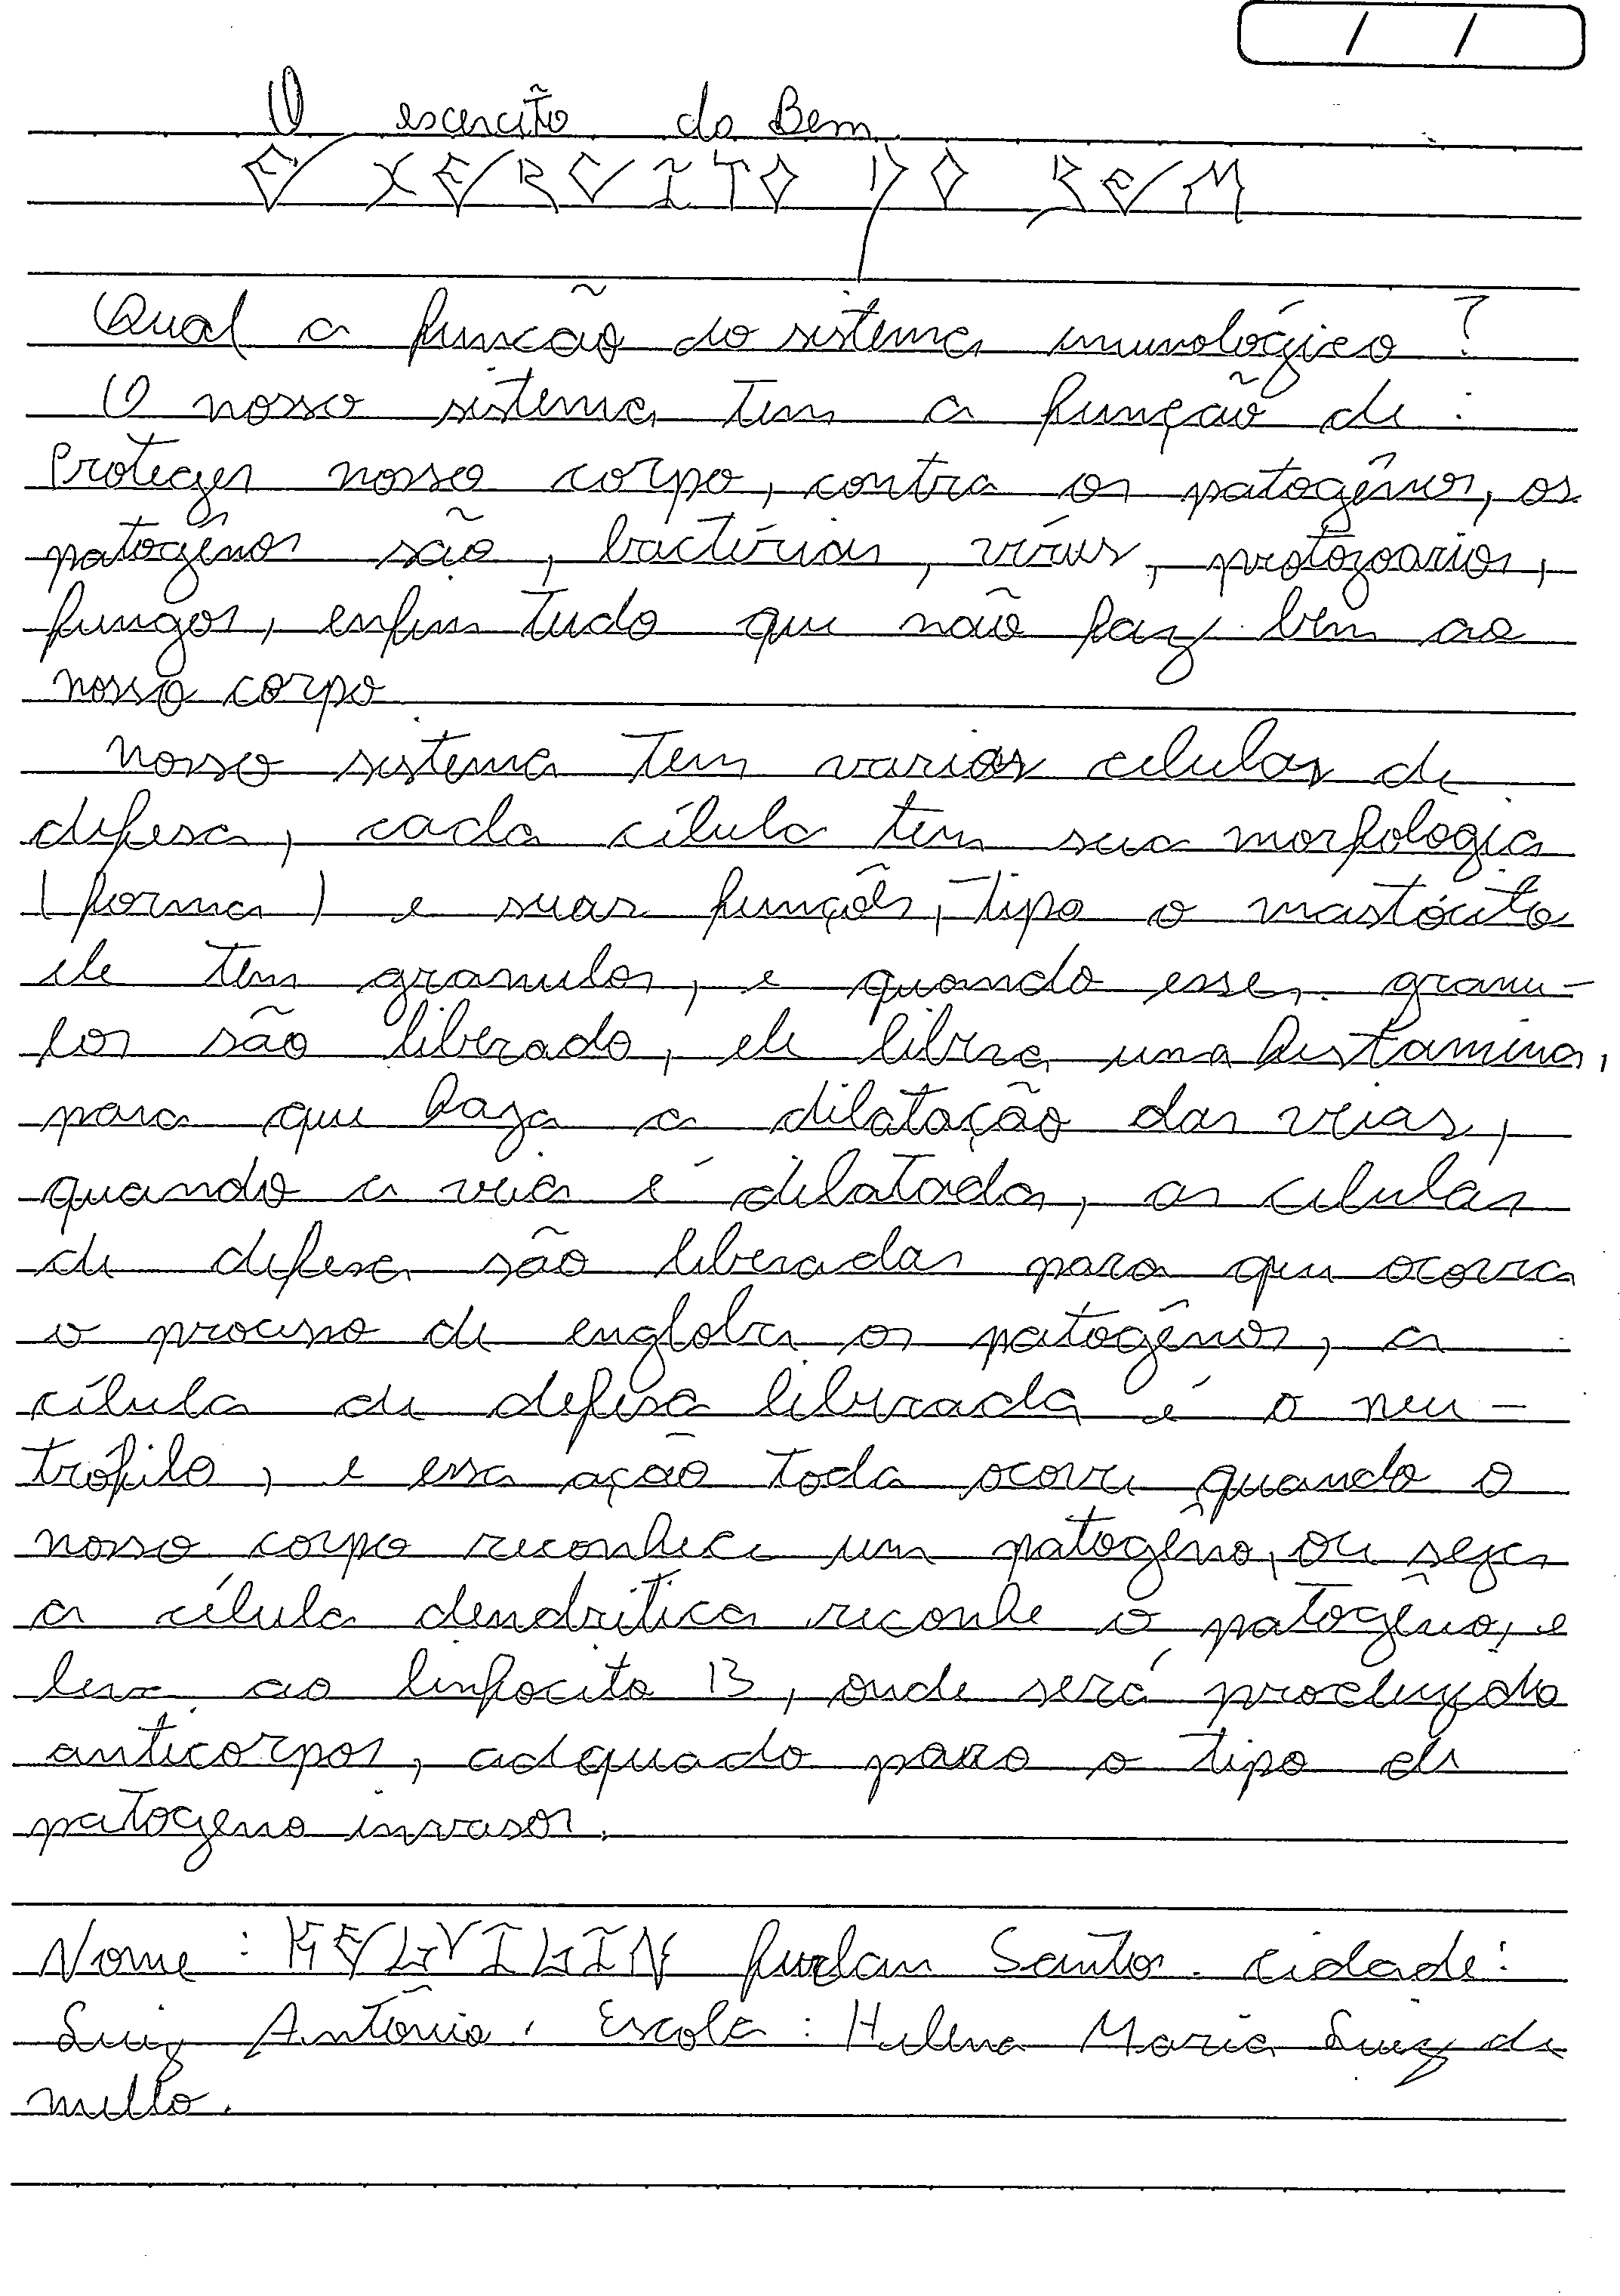 / /
O escercito do Bem
EXERCITO DO BEM
Qual a função do sistema imunológico?
O nosso sistema tem a função de:
Proteger nosso corpo, contra os patogênos, os
patogênos são, bactérias, vírus, protozoarios,
fungos, enfim tudo que não faz bem ao
nosso corpo
Nosso sistema tem varias celulas de
defesa, cada célula tem sua morfologia
(forma) e suas funções, tipo o mastócito
ele tem granulos, e quando esses granu-
los são liberado, ele libera uma histamina,
para que haja a dilatação das veias,
quando a veia é dilatada, as celulas
de defesa são liberadas para que ocorra
o processo de engloba os patogênos, a
célula de defesa liberada é o neu-
trófilo, e essa ação toda ocorre quando o
nosso corpo reconhece um patogêno, ou seja
a célula dendritica reconhe o patogêno, e
leva ao linfocito B, onde será produzido
anticorpos, adequado para o tipo de
patogeno invasor.
Nome: KELVILIN furlan Santos. cidade:
Luiz Antônio. Escola: Helena Maria Luiz de
mello.